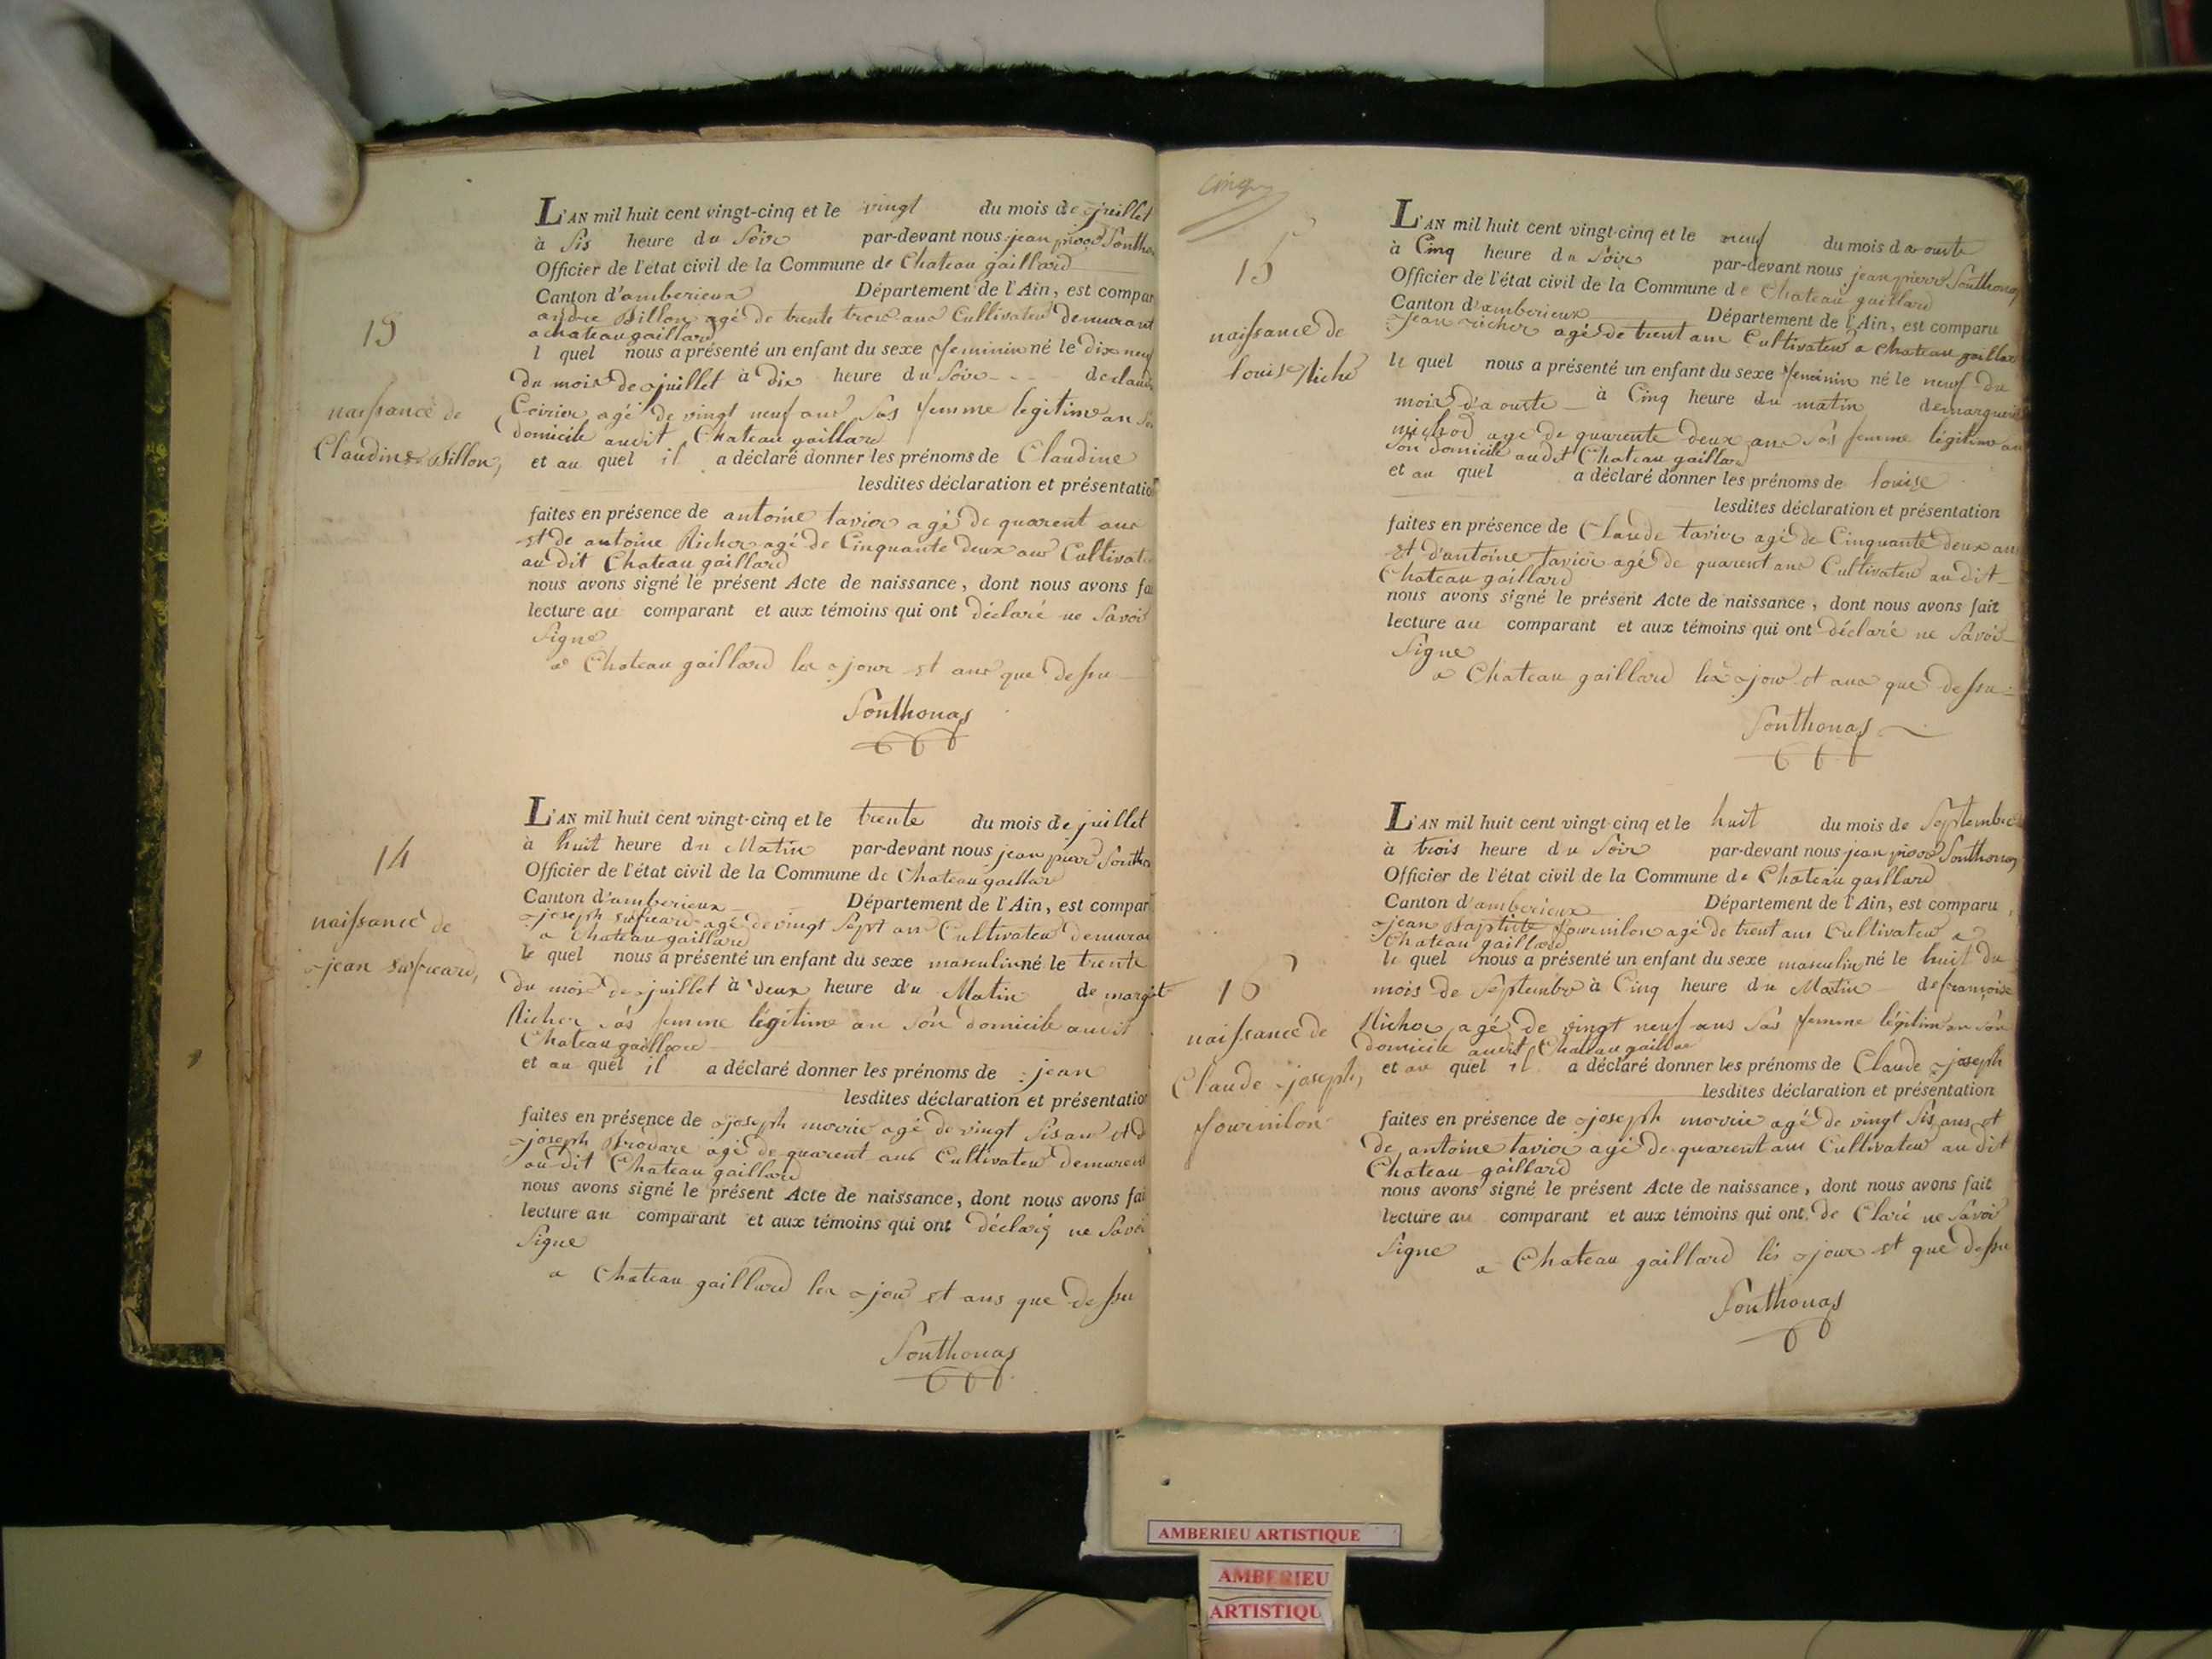 13
naissance de
Claudine Billon,
L'AN mil huit cent vingt-cinq et le vingt du mois de juillet
à sis heure du soir par-devant nous jean pierre Southon
Officier de l'état civil de la Commune de Chateau gaillard
Canton d'amberieux Département de l'Ain, est compar
andre Billon agé de trente trois ans Cultivateur demurant
a chateau gaillard
l quel nous a présenté un enfant du sexe feminin né le dix neuf
du mois de juillet à dix heure du soir de claudi
agé de vingt neuf ans sas femme legitime an
domicile audit Chateau gaillard
et au quel il a déclaré donner les prénoms de Claudine
lesdites déclaration et présentation
faites en présence de antoine tavier agé de quarent ans
et de antoine Richer agé de Cinquante deux ans Cultivat
au dit Chateau gaillard
nous avons signé le présent Acte de naissance, dont nous avons fai
lecture au comparant et aux témoins qui ont déclaré ne savoir
signe
a Chateau gaillard les jour et ans que dessu
Southonas
14
naissance de
jean
L'AN mil huit cent vingt-cinq et le trente du mois de juillet
à huit heure du Matin par-devant nous jean pierre Southo
Officier de l'état civil de la Commune de Chateau gaillar
Canton d'amberieux Département de l'Ain, est compar
joseph agé de vingt sept ans Cultivateur demura
a Chateau gaillard
le quel nous a présenté un enfant du sexe masculin né le trente
du mois de juillet à deux heure du Matin de margot
Richer sas femme légitime an son domicile audit
Chateau gaillard
et au quel il a déclaré donner les prénoms de jean
lesdites déclaration et présentation
faites en présence de joseph morrie agé de vingt sis ans et d
joseph Brodare agé de quarent ans Cultivateur demurent
au dit Chateau gaillard
nous avons signé le présent Acte de naissance, dont nous avons fai
lecture au comparant et aux témoins qui ont déclaré ne savoi
signe
a Chateau gaillard les jour et ans que dessu
Southonas
cinq
15
naissance de
louise Riché
L'AN mil huit cent vingt-cinq et le neuf du mois d a ouste
à Cinq heure du Soir par-devant nous jean pierre Southonas
Officier de l'état civil de la Commune de Chateau gaillard
Canton d'amberieux Département de l'Ain, est comparu
jean richer agé de trent ans Cultivateur a chateau gaillar
le quel nous a présenté un enfant du sexe feminin né le neuf du
mois d'a ouste à Cinq heure du matin de marguerit
michod agé de quarente deux ans sas femme légitime an
son domicile audit Chateau gaillard
et au quel a déclaré donner les prénoms de louise
lesdites déclaration et présentation
faites en présence de Claude tavier agé de Cinquante deux an
et d'antoine tavier agé de quarent ans Cultivateur au dit
Chateau gaillard
nous avons signé le présent Acte de naissance, dont nous avons fait
lecture au comparant et aux témoins qui ont déclaré ne savoir
signe
a Chateau gaillard les jour et ans que dessu
Southonas
16
naissance de
Claude joseph,
fournilon
L'AN mil huit cent vingt-cinq et le huit du mois de Septembre
à trois heure du Soir par-devant nous jean pierre Southonas
Officier de l'état civil de la Commune de Chateau gaillard
Canton d'amberieux Département de l'Ain, est comparu
jean Baptiste fournilon agé de trent ans Cultivateur a
Chateau gaillard
le quel nous a présenté un enfant du sexe masculin né le huit du
mois de Septembre à Cinq heure du Matin de françoise
Richer agé de vingt neuf ans sas femme légitim an son
domicile audit Chateau gaillar
et au quel il a déclaré donner les prénoms de Claude joseph
lesdites déclaration et présentation
faites en présence de joseph morrie agé de vingt sis ans et
de antoine tavier agé de quarent ans Cultivateur au dit
Chateau gaillard
nous avons signé le présent Acte de naissance, dont nous avons fait
lecture au comparant et aux témoins qui ont de Claré ne savoir
signe
a Chateau gaillard les jour et que dessu
Southonas
AMBERIEU ARTISTIQUE
AMBERIEU
ARTISTIQU